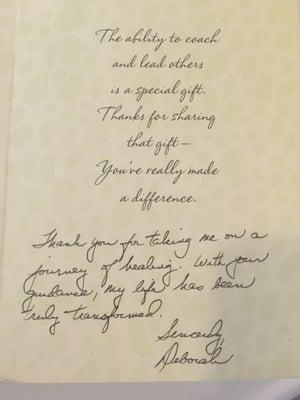 The ability to coach
and lead others
is a special gift.
Thanks for sharing
that gift—
You've really made
a difference.
Thank you for taking me on a
journey of healing. With your
guidance, my life has been
truly transformed.
Sincerely,
Deborah